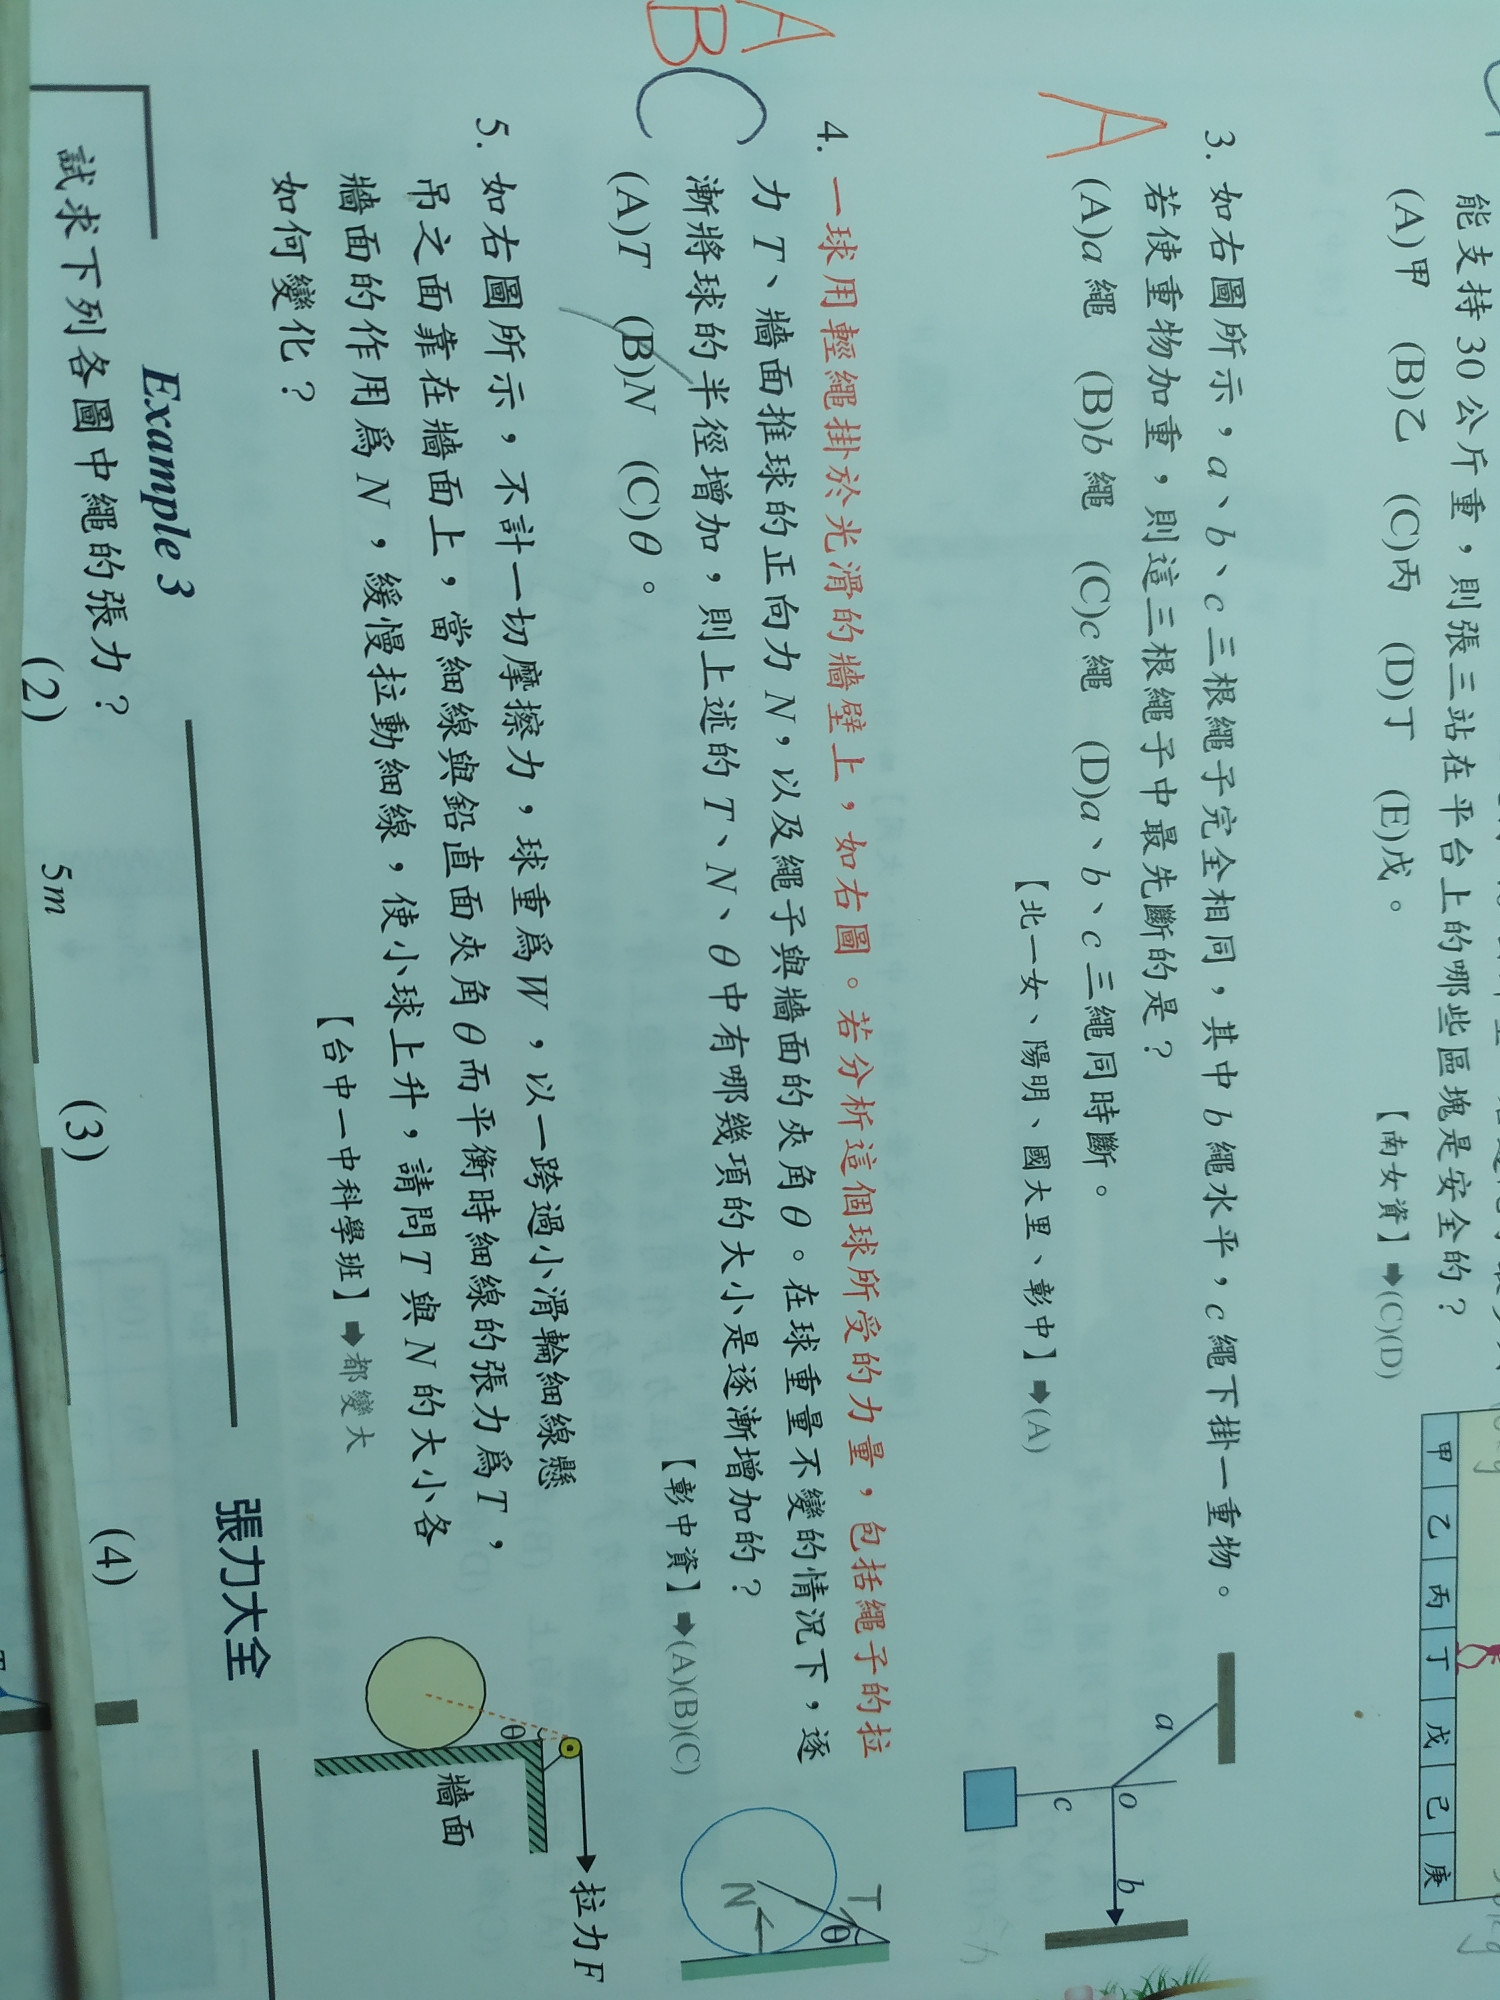 能支持30公斤重，則張三站在平台上的哪些區塊是安全的？
(A)甲 (B)乙 (C)丙 (D)丁 (E)戊。
【南女資】➡(C)(D)
甲 乙 丙 丁 戊 己 庚
A
3. 如右圖所示，a、b、c三根繩子完全相同，其中b繩水平，c繩下掛一重物。
若使重物加重，則這三根繩子中最先斷的是？
(A)a繩 (B)b繩 (C)c繩 (D)a、b、c三繩同時斷。
【北一女、陽明、國大里、彰中】➡(A)
a
o
b
c
A
B
C
4. 一球用輕繩掛於光滑的牆壁上，如右圖。若分析這個球所受的力量，包括繩子的拉
力T、牆面推球的正向力N，以及繩子與牆面的夾角θ。在球重量不變的情況下，逐
漸將球的半徑增加，則上述的T、N、θ中有哪幾項的大小是逐漸增加的？
(A)T (B)N (C)θ。
【彰中資】➡(A)(B)(C)
T
θ
N
5. 如右圖所示，不計一切摩擦力，球重爲W，以一跨過小滑輪細線懸
吊之面靠在牆面上，當細線與鉛直面夾角θ而平衡時細線的張力爲T，
牆面的作用爲N，緩慢拉動細線，使小球上升，請問T與N的大小各
如何變化？
【台中一中科學班】➡都變大
θ
牆面
拉力F
Example 3
張力大全
試求下列各圖中繩的張力？
(2)
5m
(3)
(4)